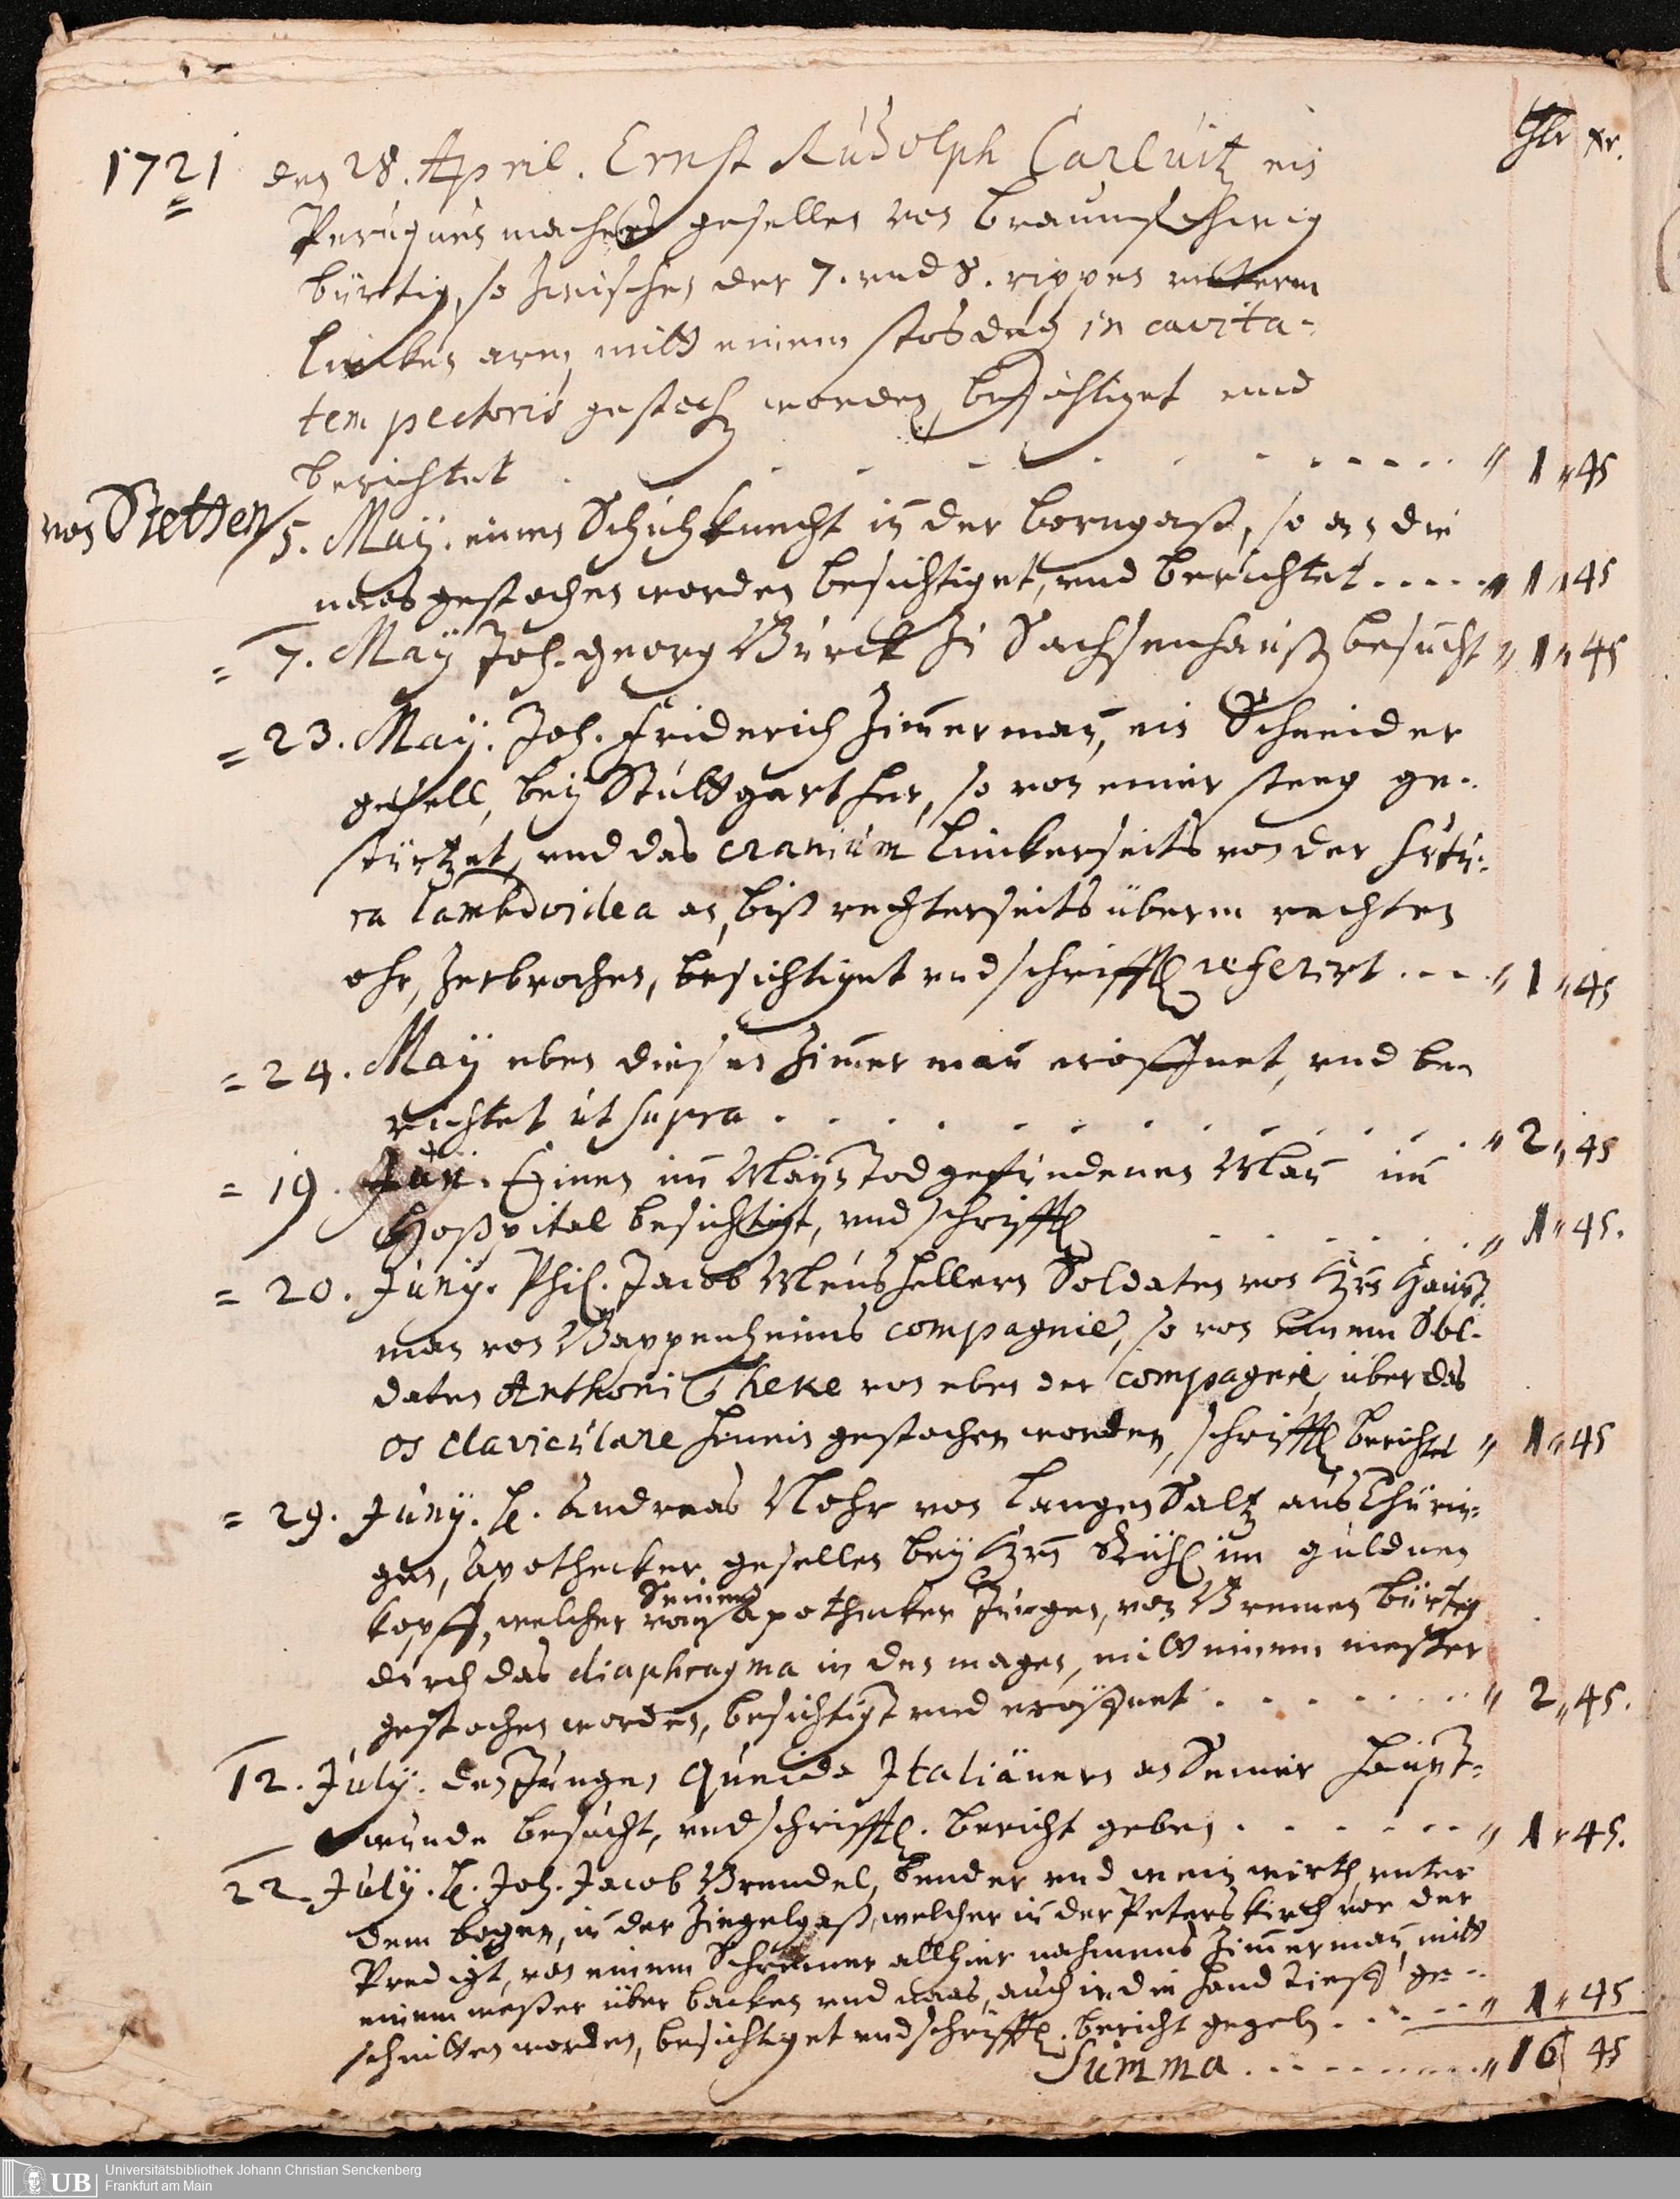 Thlr xr.
1721 den 28. April. Ernst Rudolph Carluitz ein
Peruquen machers gesellen von Braunschweig
bürtig, so zwischen der 7. und 8. rippen unterm
lincken arm mitt einem stosdeg in cavita-
tem pectoris gestoch worden, besichtiget und
berichtet . . . . . . . . . . . " 1 " 45
von Stetten 5. May. einen Schuhknecht in der borngaß, so an die
naas gestochen worden besichtiget, und berichtet . . . . " 1 " 45
= 7. May Joh. Georg Burck zu Sachsenhauß besucht " 1 " 45
= 23. May. Joh. Friderich Zimmerman, ein Schneider
gesell, bey Stuttgart her, so von einer steeg ge-
stürtzet, und das cranium linckerseits von der sutu-
ra lambdoidea an, biß rechterseits überm rechten
ohr, zerbrochen, besichtiget und schrifftl referirt . . . " 1 " 45
= 24. May eben diesen Zimmerman eröffnet, und be-
richtet ut supra . . . . . . . . . . " 2 " 45
= 19. Juni. Einen im Mayn tod gefundenen Man im
Hoßpital besichtigt, und schrifftl . . . . . " 1 " 45.
= 20. Juny. Phil. Jacob Meushellern Soldaten von Hrn Haupt-
man von Pappenheims compagnie, so von einem Sol-
daten Anthoni Theke von eben der compagnie über das
os claviculare hinein gestochen worden, schrifftl bericht " 1 " 45
= 29. Juny. H. Andreas Mohr von Langen Saltz aus Thürin-
gen, Apothecker gesellen bey Hrn im guldnen
kopff, welcher von Seinem Apothecker Jungen, von Bremen bürtig
durch das diaphragma in den magen, mitt einem messer
gestochen worden, besichtigt und eröffnet . . . . . . . " 2 " 45.
12. July. den Jungen Queida Italiänern an Seiner haupt-
wunde besucht, und schrifftl. bericht geben . . . . . . " 1 " 45.
22. July. H. Joh. Jacob Brendel, bender und wein wirth unter
dem bogen, in der Ziegelgaß, welcher in der Peters kirch vor der
Predigt, von einem Schreiner allhier nahmens Zimmerman, mitt
einem meßer über backen und naas, auch in die hand tieff ge-
schnitten worden, besichtiget und schrifftl. bericht gegeb . . . . " 1 " 45
Summa . . . . . . . . . . " 16 45
UB Universitätsbibliothek Johann Christian Senckenberg
Frankfurt am Main